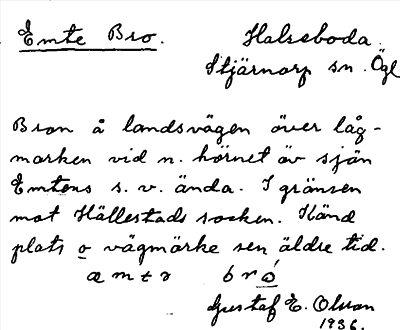 Emte Bro.
Halseboda.
Stjärnorp sn. Ögl
Bron å landsvägen över låg-
marken vid n. hörnet av sjön
Emtens s.v. ända. I gränsen
mot Hällestads socken. Känd
plats o vägmärke sen äldre tid.
bró
Gustaf E. Olsson
1936.